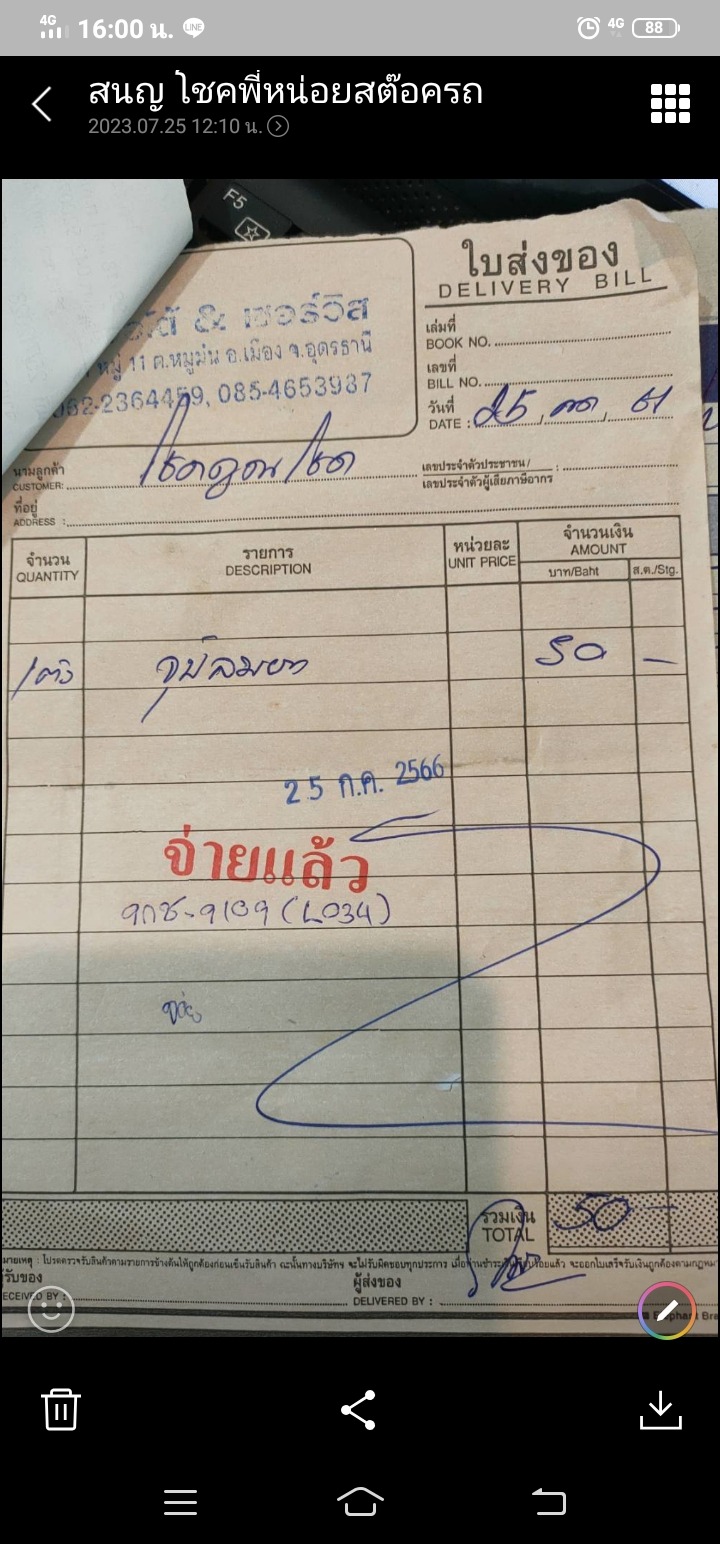 4G 16:00 น. LINE 4G 88
สนญ โชคพี่หน่อยสต๊อครถ
2023.07.25 12:10 น.
F5
ใบส่งของ
DELIVERY BILL
& เซอร์วิส
หมู่ 11 ต.หมูม่น อ.เมือง จ.อุดรธานี
062-2364459, 085-4653937
เล่มที่
BOOK NO.
เลขที่
BILL NO.
วันที่
DATE : 25
นามลูกค้า
CUSTOMER:
เลขประจำตัวประชาชน/ :
เลขประจำตัวผู้เสียภาษีอากร
ที่อยู่
ADDRESS :
จำนวน รายการ หน่วยละ จำนวนเงิน
QUANTITY DESCRIPTION UNIT PRICE AMOUNT
บาท/Baht ส.ต./Stg.
1 ตัว จุ๊บลมยาง 50 -
25 ก.ค. 2566
จ่ายแล้ว
(L034)
รวมเงิน 50 -
TOTAL
มายเหตุ : โปรดตรวจรับสินค้าตามรายการข้างต้นให้ถูกต้องก่อนเซ็นรับสินค้า ฉะนั้นทางบริษัทฯ จะไม่รับผิดชอบทุกประการ
รับของ ผู้ส่งของ
ECEIVED BY : DELIVERED BY :
Elephant Bra